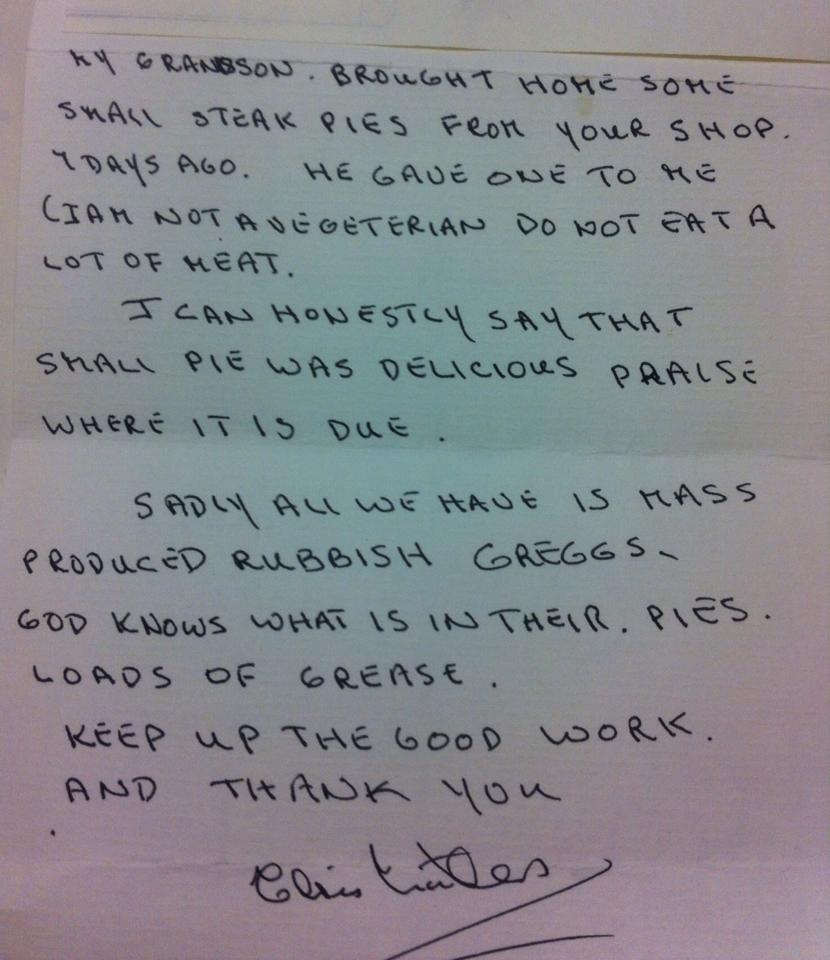 MY GRANDSON. BROUGHT HOME SOME
SMALL STEAK PIES FROM YOUR SHOP.
7 DAYS AGO. HE GAVE ONE TO ME
(I AM NOT A VEGETERIAN DO NOT EAT A
LOT OF MEAT.
I CAN HONESTLY SAY THAT
SMALL PIE WAS DELICIOUS PRAISE
WHERE IT IS DUE.
SADLY ALL WE HAVE IS MASS
PRODUCED RUBBISH GREGGS.
GOD KNOWS WHAT IS IN THEIR. PIES.
LOADS OF GREASE.
KEEP UP THE GOOD WORK.
AND THANK YOU